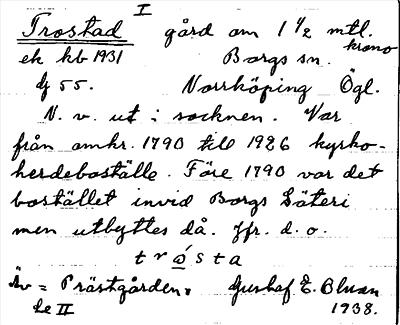 I
Trostad gård om 1 1/2 mtl.
krono
ek kb 1931 Borgs sn.
dj 55. Norrköping Ögl.
N. v. ut i socknen. Var
från omkr. 1790 till 1926 kyrko-
herdeboställe. Före 1790 var det
bostället invid Borgs Säteri
men utbyttes då. Jfr. d. o.
trósta
Äv = Prästgården.
Gustaf E. Bluan
le II 1938.